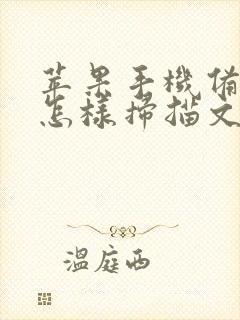 苹果手機備
怎樣掃描文
溫庭西